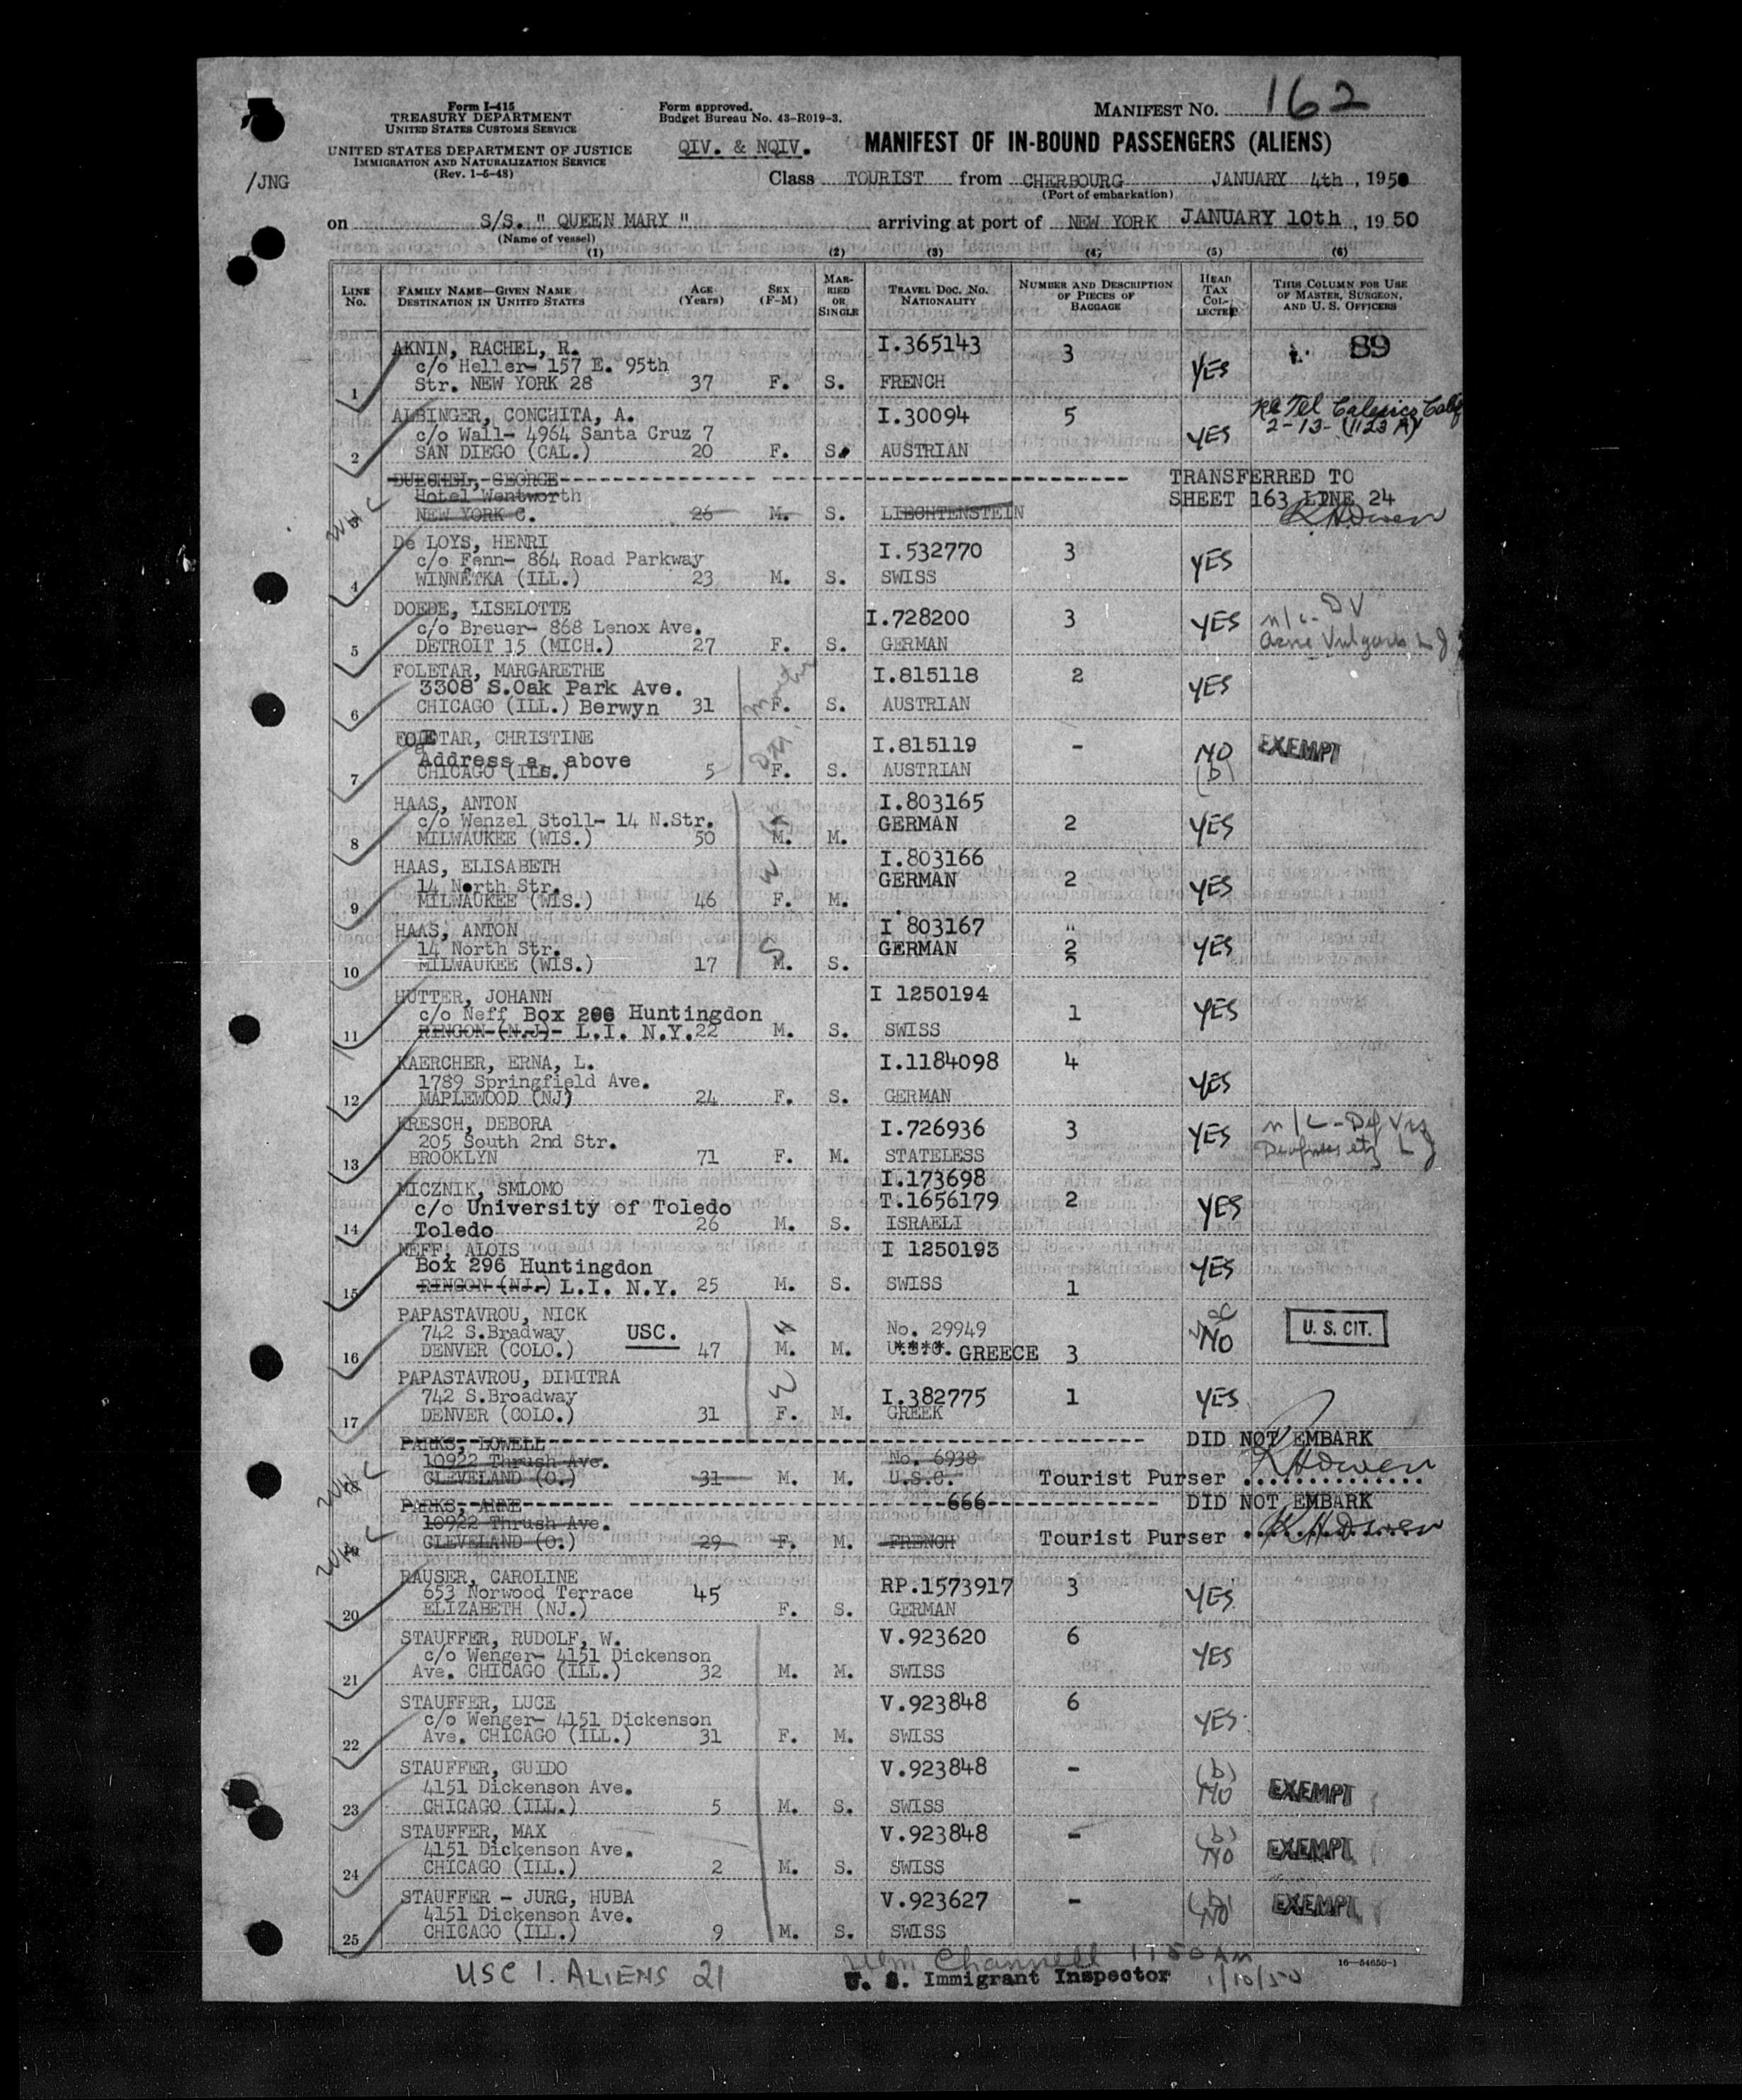 Form I-415
TREASURY DEPARTMENT
UNITED STATES CUSTOMS SERVICE
UNITED STATES DEPARTMENT OF JUSTICE
IMMIGRATION AND NATURALIZATION SERVICE
(Rev. 1-6-48)
/JNG
Form approved.
Budget Bureau No. 43-R019-3.
QIV. & NQIV.
MANIFEST NO. 162
MANIFEST OF IN-BOUND PASSENGERS (ALIENS)
Class TOURIST from CHERBOURG JANUARY 4th, 1950
(Port of embarkation)
on S/S. " QUEEN MARY " arriving at port of NEW YORK JANUARY 10th, 1950
(Name of vessel)
(1) (2) (3) (4) (5) (6)
LINE No. FAMILY NAME—GIVEN NAME DESTINATION IN UNITED STATES AGE (Years) SEX (F-M) MARRIED OR SINGLE TRAVEL DOC. NO. NATIONALITY NUMBER AND DESCRIPTION OF PIECES OF BAGGAGE HEAD TAX COLLECTED THIS COLUMN FOR USE OF MASTER, SURGEON, AND U. S. OFFICERS
AKNIN, RACHEL, R. I.365143 3 89
c/o Heller- 157 E. 95th YES
1 Str. NEW YORK 28 37 F. S. FRENCH
ALBINGER, CONCHITA, A. I.30094 5 Calexico Calif
c/o Wall- 4964 Santa Cruz 7 YES 2-13- (1123 A)
2 SAN DIEGO (CAL.) 20 F. S. AUSTRIAN
DUECHEL, GEORGE TRANSFERRED TO
Hotel Wentworth SHEET 163 LINE 24
3 NEW YORK C. 26 M. S. LIECHTENSTEIN KHOwen
De LOYS, HENRI I.532770 3
c/o Fenn- 864 Road Parkway YES
4 WINNETKA (ILL.) 23 M. S. SWISS
DOEDE, LISELOTTE I.728200 3 n/c- DV
c/o Breuer- 868 Lenox Ave. YES
5 DETROIT 15 (MICH.) 27 F. S. GERMAN Acne Vulgaris
FOLETAR, MARGARETHE I.815118 2
3308 S.Oak Park Ave. YES
6 CHICAGO (ILL.) Berwyn 31 F. S. AUSTRIAN
FOLETAR, CHRISTINE I.815119 - NO EXEMPT
Address as above (b)
7 CHICAGO (ILL.) 5 F. S. AUSTRIAN
HAAS, ANTON I.803165
c/o Wenzel Stoll- 14 N.Str. GERMAN 2 YES
8 MILWAUKEE (WIS.) 50 M. M.
HAAS, ELISABETH I.803166
14 North Str. GERMAN 2 YES
9 MILWAUKEE (WIS.) 46 F. M.
HAAS, ANTON I 803167
14 North Str. GERMAN 2 YES
10 MILWAUKEE (WIS.) 17 M. S.
HUTTER, JOHANN I 1250194
c/o Neff Box 296 Huntingdon 1 YES
11 RINGON (N.J)- L.I. N.Y. 22 M. S. SWISS
KAERCHER, ERNA, L. I.1184098 4
1789 Springfield Ave. YES
12 MAPLEWOOD (NJ) 24 F. S. GERMAN
KRESCH, DEBORA I.726936 3 n/c - Def Vis
205 South 2nd Str. YES
13 BROOKLYN 71 F. M. STATELESS
MICZNIK, SMLOMO I.173698
c/o University of Toledo T.1656179 2 YES
14 Toledo 26 M. S. ISRAELI
NEFF, ALOIS I 1250193
Box 296 Huntingdon YES
15 RINGON (NJ.) L.I. N.Y. 25 M. S. SWISS 1
PAPASTAVROU, NICK No. 29949
742 S.Bradway USC. NO U. S. CIT.
16 DENVER (COLO.) 47 M. M. U.S.C. GREECE 3
PAPASTAVROU, DIMITRA I.382775 1
742 S.Broadway YES
17 DENVER (COLO.) 31 F. M. GREEK
PARKS, LOWELL DID NOT EMBARK
10922 Thrush Ave. No. 6938
18 CLEVELAND (O.) 31 M. M. U.S.C. Tourist Purser KHOwen
PARKS, ANNE 666 DID NOT EMBARK
10922 Thrush Ave.
19 CLEVELAND (O.) 29 F. M. FRENCH Tourist Purser KHOwen
RAUSER, CAROLINE RP.1573917 3
653 Norwood Terrace 45 YES
20 ELIZABETH (NJ.) F. S. GERMAN
STAUFFER, RUDOLF, W. V.923620 6
c/o Wenger- 4151 Dickenson YES
21 Ave. CHICAGO (ILL.) 32 M. M. SWISS
STAUFFER, LUCE V.923848 6
c/o Wenger- 4151 Dickenson YES
22 Ave. CHICAGO (ILL.) 31 F. M. SWISS
STAUFFER, GUIDO V.923848 - (b)
4151 Dickenson Ave. NO EXEMPT
23 CHICAGO (ILL.) 5 M. S. SWISS
STAUFFER, MAX V.923848 - (b)
4151 Dickenson Ave. NO EXEMPT
24 CHICAGO (ILL.) 2 M. S. SWISS
STAUFFER - JURG, HUBA V.923627 - (b)
4151 Dickenson Ave. NO EXEMPT
25 CHICAGO (ILL.) 9 M. S. SWISS
USC 1. ALIENS 21
Wm Channell 1150 AM
U. S. Immigrant Inspector 1/10/50
16—54650-1